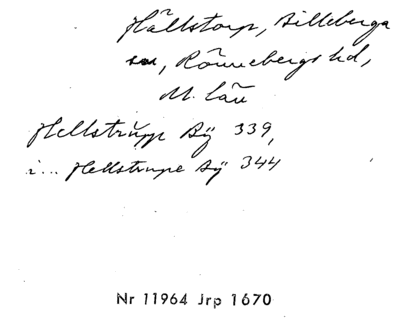 Hällstorp, Billeberga
sn, Rönnebergs hd,
M. län
Hellstrupp Bÿ 339,
i... Hellstrupe Bÿ 344
Nr 11964 Jrp 1670